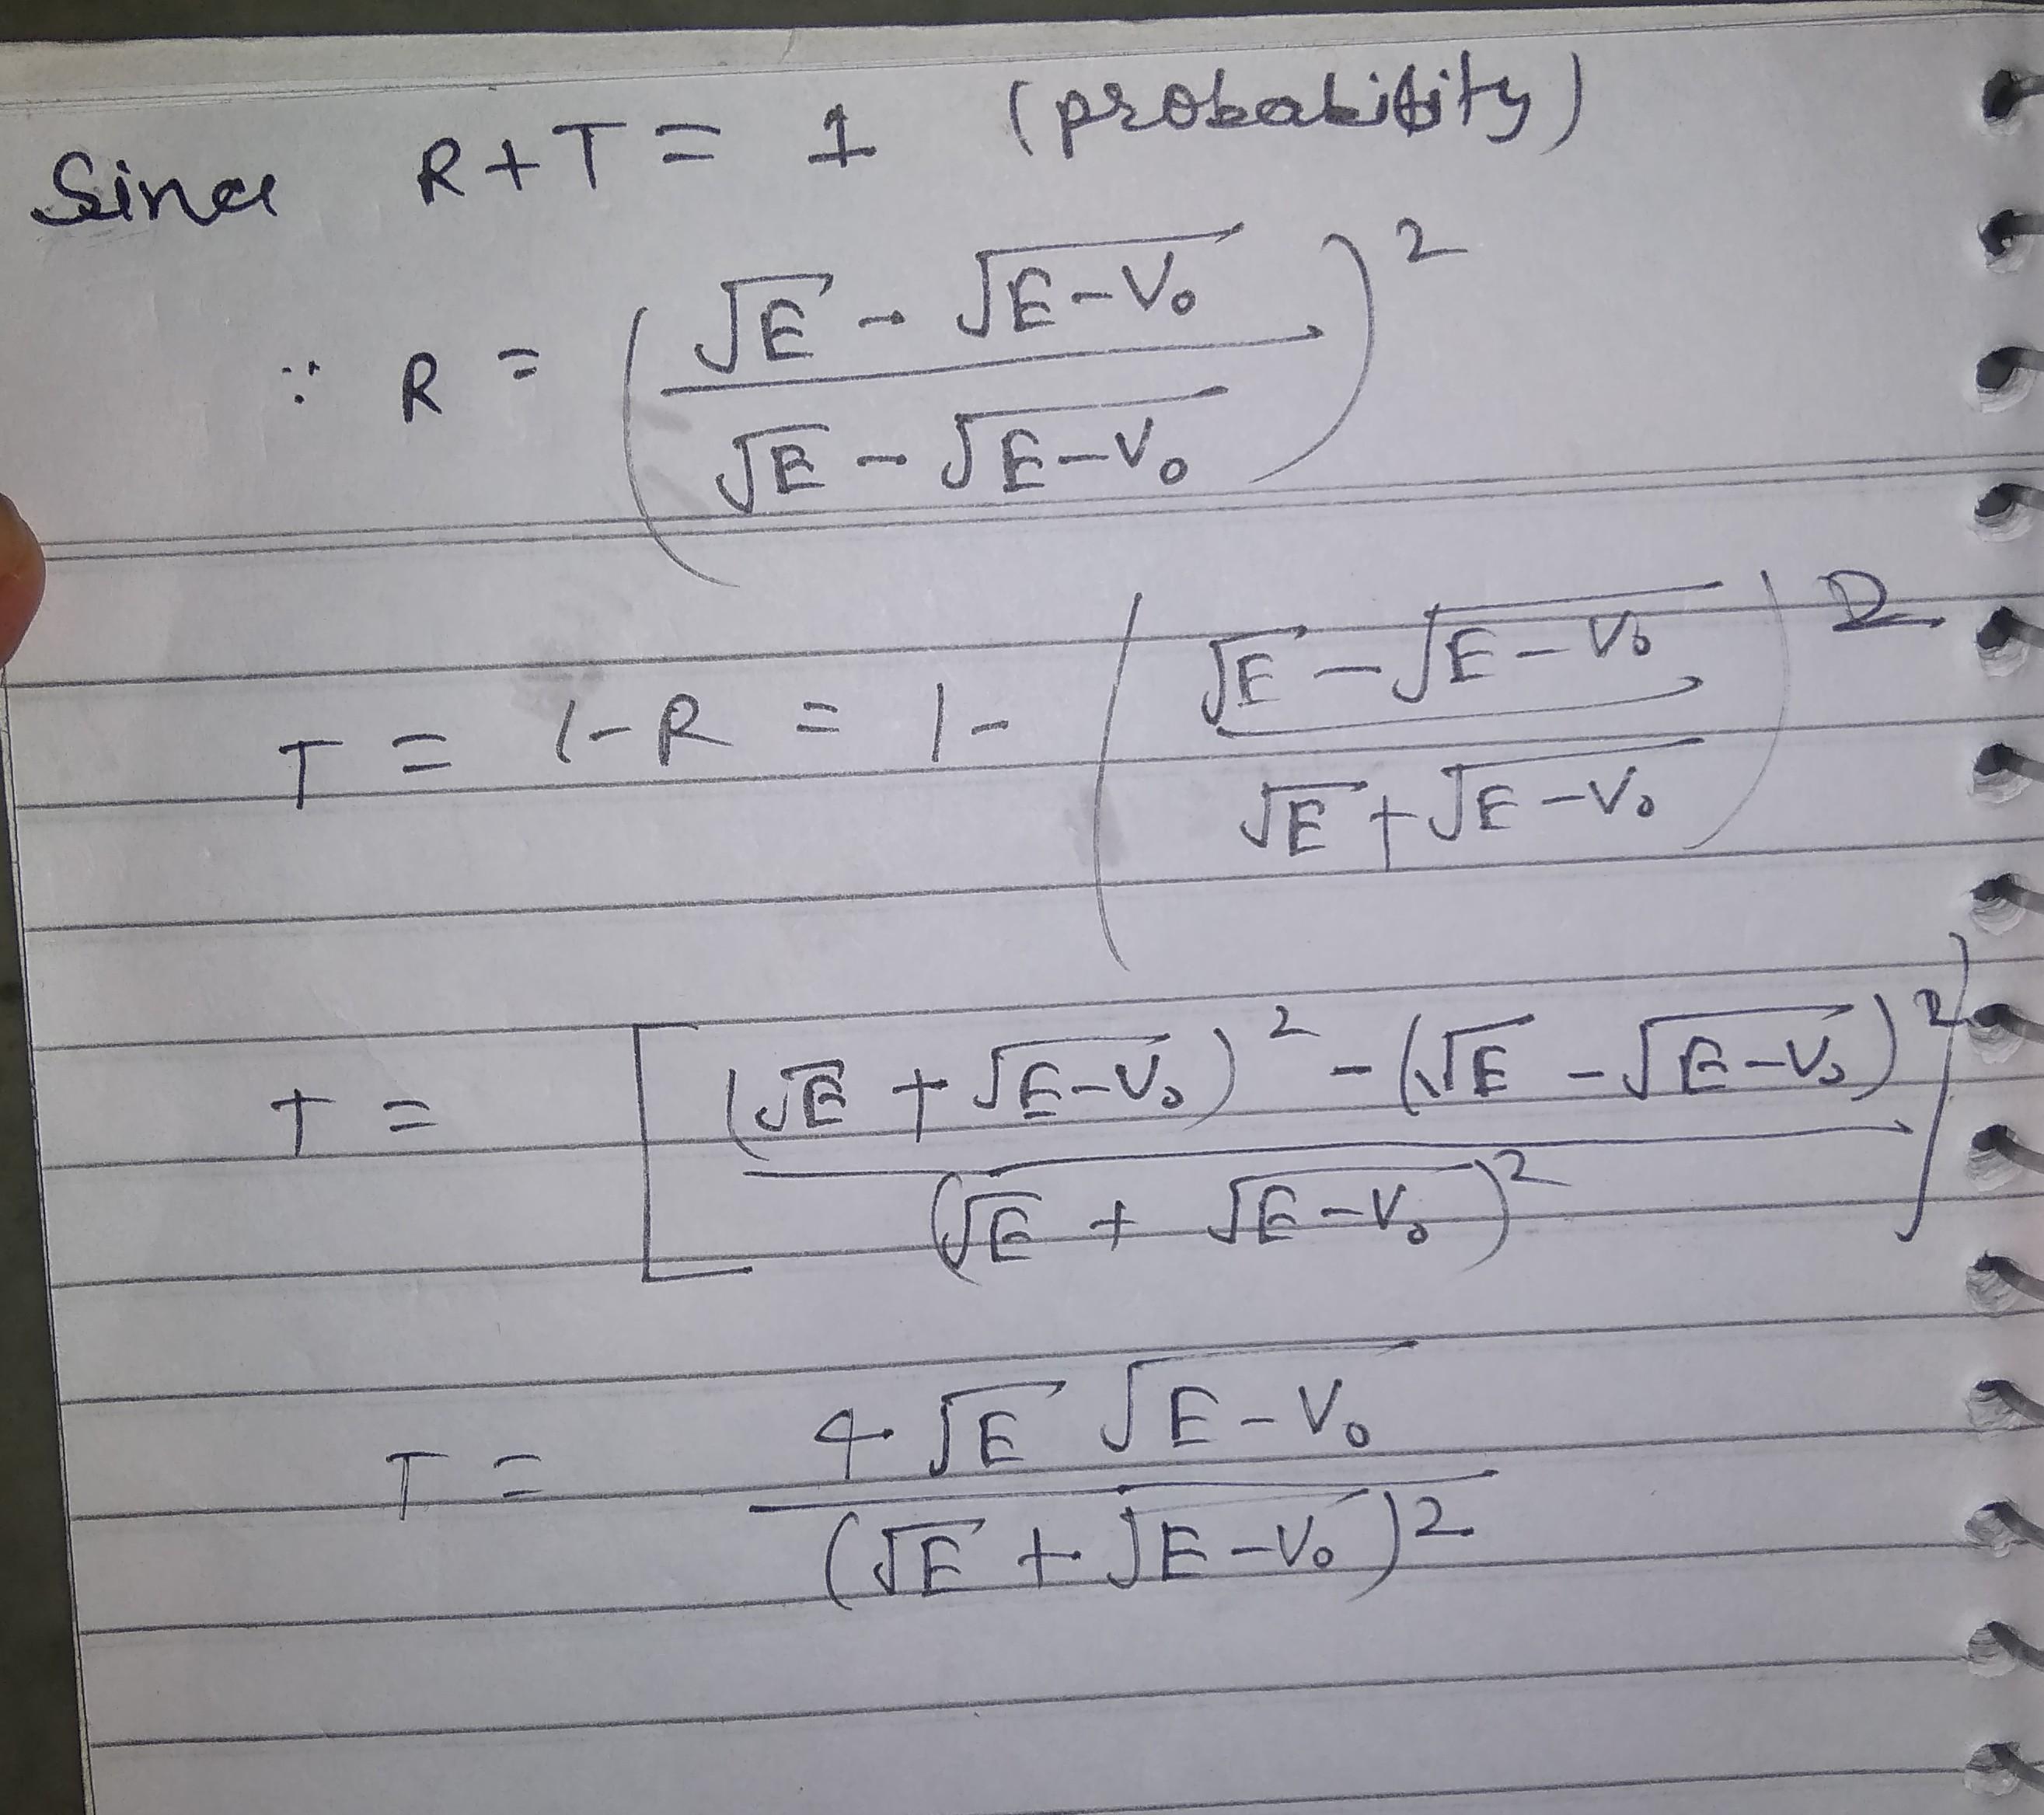 Since R+T = 1 (probability)
∵ R = ( (√E - √(E-V₀)) / (√E - √(E-V₀)) )²
T = 1-R = 1- ( (√E - √(E-V₀)) / (√E + √(E-V₀)) )²
T = [ ( (√E + √(E-V₀))² - (√E - √(E-V₀))² ) / (√E + √(E-V₀))² ]
T = 4 √E √(E-V₀) / (√E + √(E-V₀))²